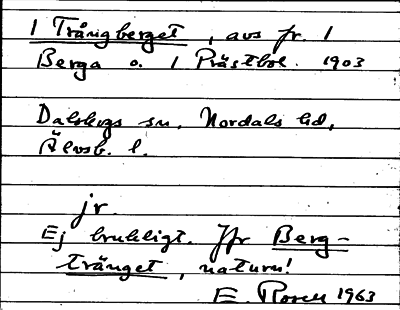 1 Trångberget, avs fr. 1
Berga o. 1 Prästbol. 1903
Dalskogs sn. Nordals hd,
Älvsb. l.
jr.
Ej brukligt. Jfr Berg-
trånget, naturn!
E. Rosell 1963